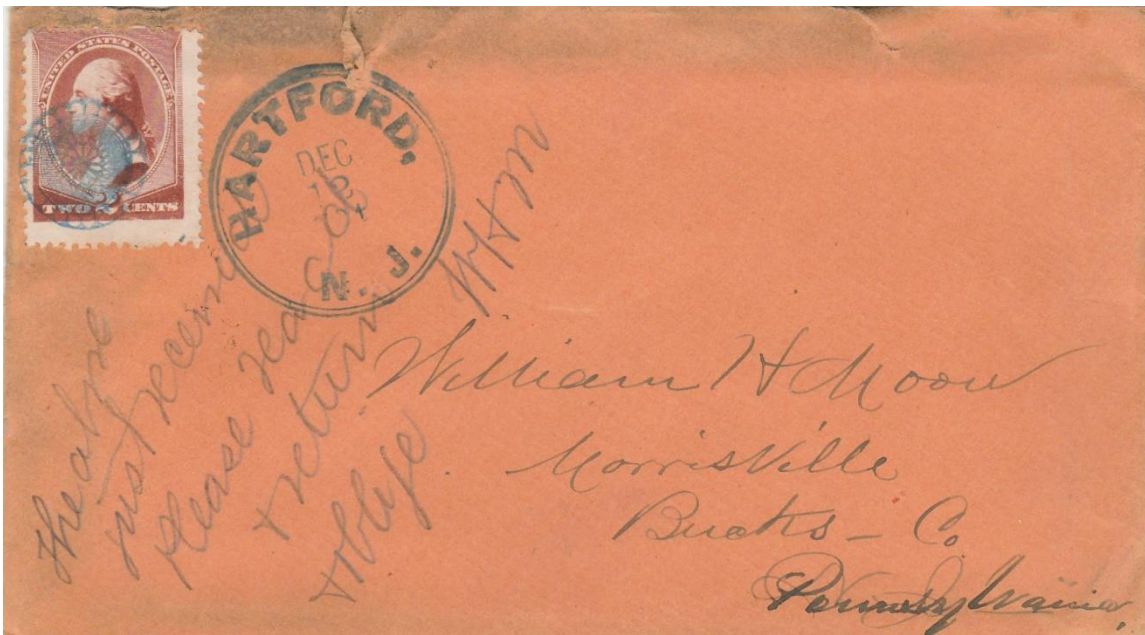 UNITED STATES POSTAGE
TWO CENTS
HARTFORD.
DEC
N. J.
The above
just received
please read
& return
& oblige
WHM
William H Moon
Morrisville
Bucks - Co.
Pennsylvania,